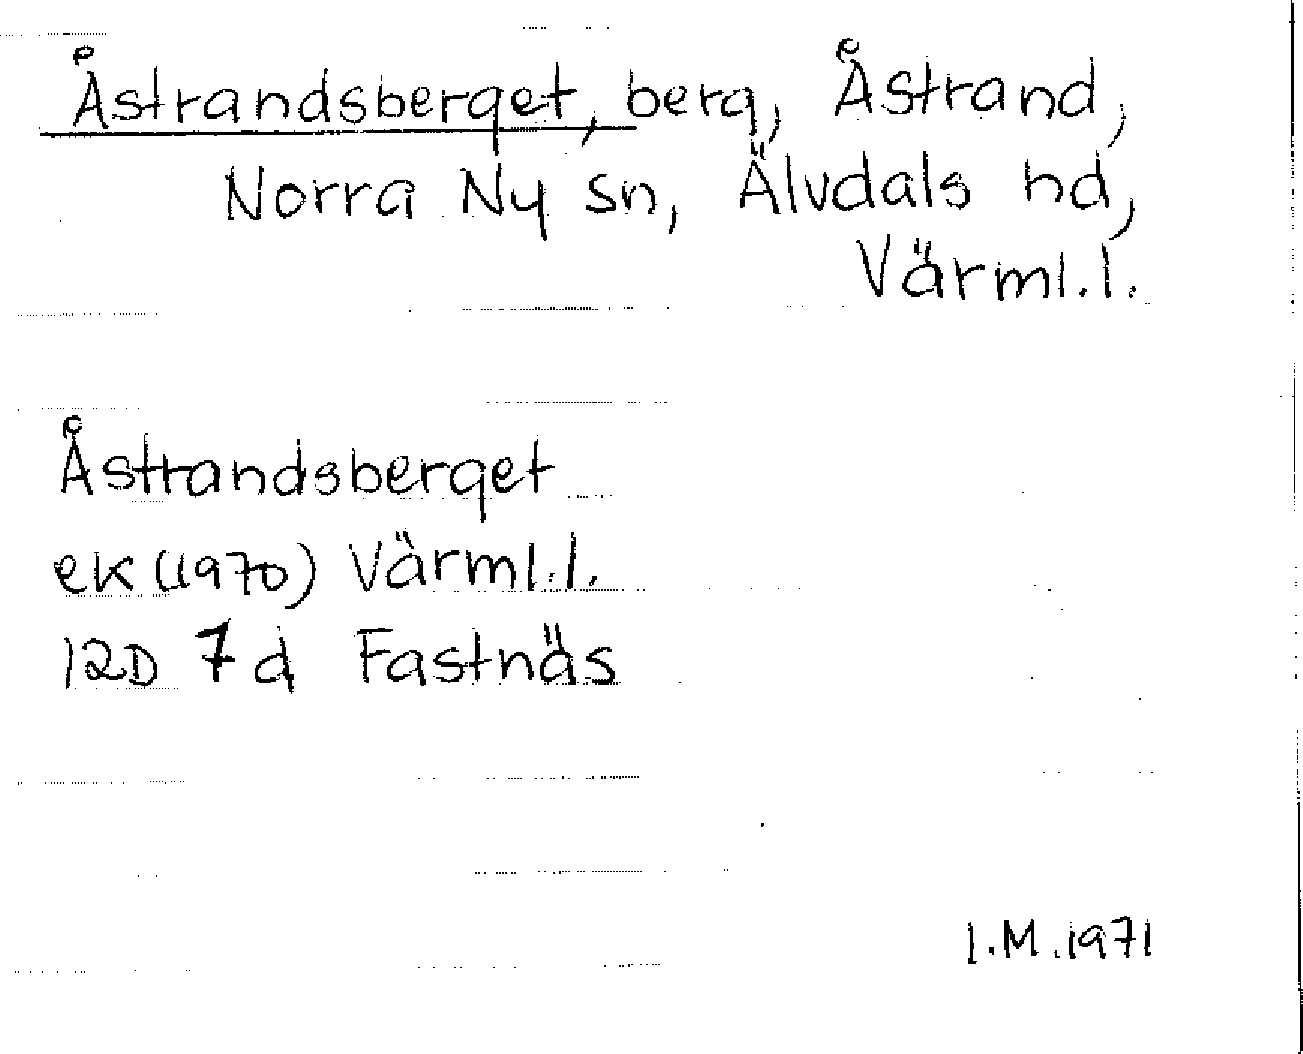 Åstrandsberget, berg, Åstrand,
Norra Ny sn, Älvdals hd,
Värml.l.
Åstrandsberget
ek (1970) Värml.l.
12D 7d Fastnäs
I.M.1971